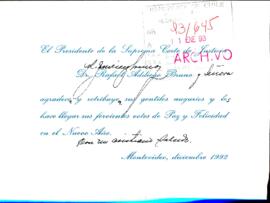 93/645
11 ENE 93
ARCHIVO
El Presidente de la Suprema Corte de Justicia
Dr. Rafael Addiego Bruno y Señora
agradece y retribuye sus gentiles augurios y les
hace llegar sus fervientes votos de Paz y Felicidad
en el Nuevo Año.
Con un cristiano saludo.
Montevideo, diciembre 1992